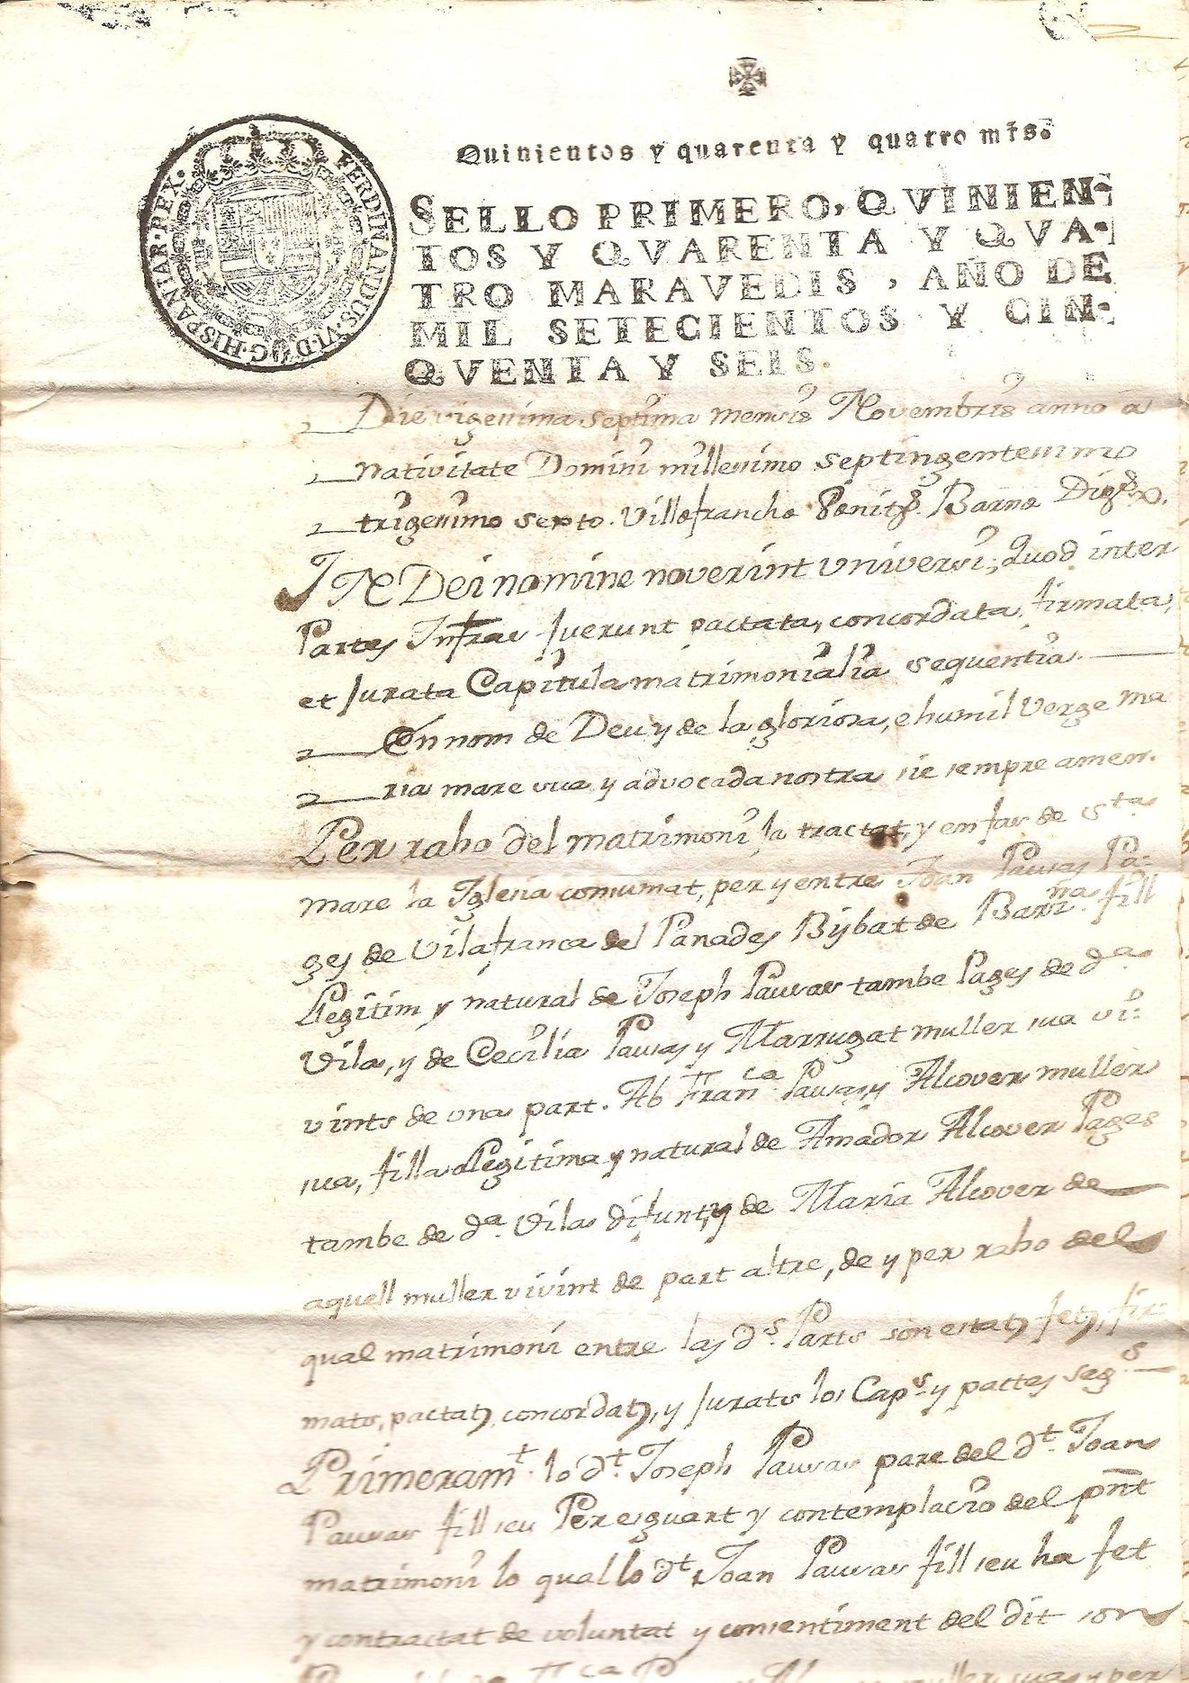 FERDINANDUS·VI·D·G·HISPANIAR·REX·
Quinientos y quarenta y quatro mrs.
SELLO PRIMERO, QVINIEN-
TOS Y QVARENTA Y QVA-
TRO MARAVEDIS, AÑO DE
MIL SETECIENTOS Y CIN-
QVENTA Y SEIS.
Die vigessima septima mensis Novembris anno a
nativitate Domini millessimo septingentessimo
trigessimo sexto. Villafrancha Barna
IN Dei nomine noverint universi, Quod inter
Partes Infras fuerunt pactata, concordata, firmata,
et jurata Capitula matrimonialia sequentia.
En nom de Deu y de la gloriosa, e humil Verge ma
ria mare sua y advocada nostra sie sempre amen.
Per raho del matrimoni ja tractat, y en fas de Sta
mare la Iglesia consumat, per y entre Joan Pausas Pa-
ges de Vilafranca del Panades Bisbat de Barna. fill
Llegitim y natural de Joseph Pausas tambe Pages de da
Vila, y de Cecilia Pausas y Marrugat muller sua vi-
vints de una part. Ab Franca Pausas y Alcover muller
sua, filla Llegitima y natural de Amador Alcover Pages
tambe de da. Vila difunt, y de Maria Alcover de
aquell muller vivint de part altre, de y per raho del
qual matrimoni entre las ds Parts son estats fets, fir-
mats, pactats, concordats, y jurats los Caps. y pactes segs
Primeramt. lo dt. Joseph Pausas pare del dt. Joan
Pausas fill seu Per esguart y contemplacio del pnt
matrimoni lo qual lo dt. Joan Pausas fill seu ha fet
y contractat de voluntat y consentiment del dit son